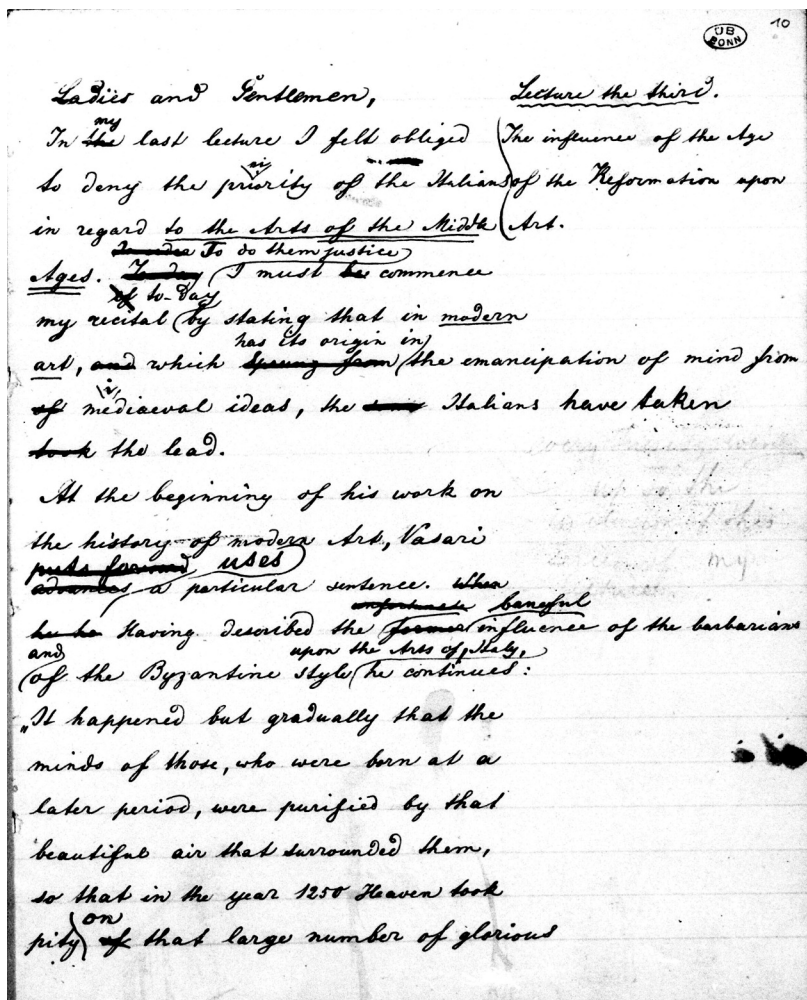 10
UB
BONN
Ladies and Gentlemen,
Lecture the third.
The influence of the Age
of the Reformation upon
Art.
my
In the last lecture I felt obliged
to deny the priority of the Italians
in regard to the Arts of the Middle
To do them justice
Ages. To day I must be commence
of to-day
my recital by stating that in modern
has its origin in
art, and which sprung from the emancipation of mind from
of mediaeval ideas, the Italians have taken
took the lead.
At the beginning of his work on
the history of modern Art, Vasari
puts forward uses
advances a particular sentence. When
unfortunate baneful
he he Having described the former influence of the barbarians
and upon the Arts of Italy,
of the Byzantine style he continues:
„It happened but gradually that the
minds of those, who were born at a
later period, were purified by that
beautiful air that surrounded them,
so that in the year 1250 Heaven took
on
pity of that large number of glorious